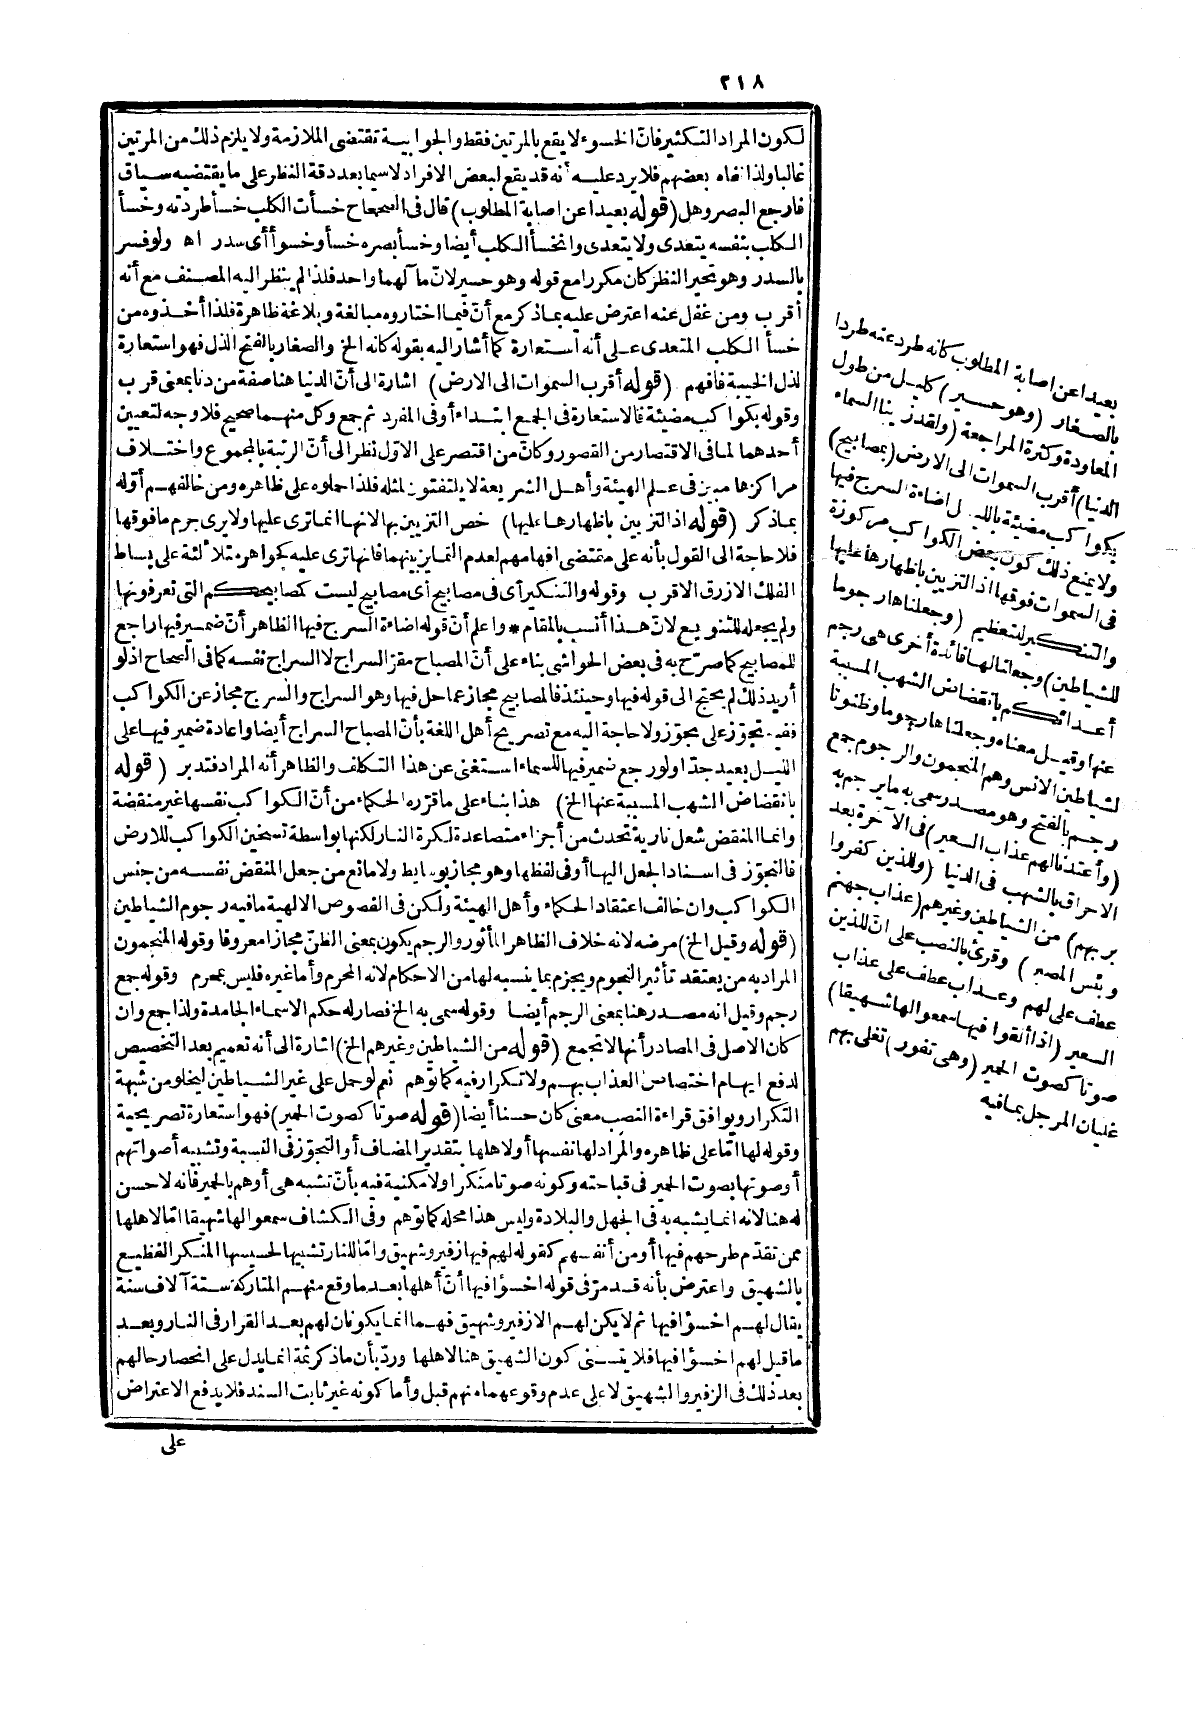 ٢١٨
لكون المراد التكثير فان الخسوء لا يقع بالمرتين فقط والجوابية تقتضى الملازمة ولا يلزم ذلك من المرتين
غالبا ولذا نفاه بعضهم فلا يرد عليه أنه قد يقع لبعض الافراد لاسيما بعد دقة النظر على ما يقتضيه سياق
فارجع البصر وهل (قوله بعيدا عن اصابة المطلوب) قال فى الصحاح خسأت الكلب خسأ طردته وخسأ
الكلب بنفسه يتعدى ولا يتعدى وانخسأ الكلب أيضا وخسأ بصره خسأ وخسوأ أى سدر اه ولو فسر
بالسدر وهو تحير النظر كان مكررا مع قوله وهو حسير لانّ مآلهما واحد فلذا لم ينظر اليه المصنف مع أنه
أقرب ومن غفل عنه اعترض عليه بما ذكر مع أنّ فيما اختاره مبالغة وبلاغة ظاهرة فلذا أخذوه من
خسأ الكلب المتعدى على أنه استعارة كما أشار اليه بقوله كانه الخ والصغار بالفتح الذل فهو استعارة
لذل الخيبة فافهم (قوله أقرب السموات الى الارض) اشارة الى أنّ الدنيا هنا صفة من دنا بمعنى قرب
وقوله بكواكب مضيئة فالاستعارة فى الجمع ابتداء أو فى المفرد ثم جمع وكل منهما صحيح فلا وجه لتعيين
أحدهما لما فى الاقتصار من القصور وكأن من اقتصر على الاوّل نظر الى أنّ الرتبة بالمجموع واختلاف
مراكزها مبين فى علم الهيئة وأهل الشريعة لا يلتفتون لمثله فلذا حملوه على ظاهره ومن خالفهم أوّله
بما ذكر (قوله اذ التزيين باظهارها عليها) خص التزيين بها لانها انما ترى عليها ولا يرى جرم ما فوقها
فلا حاجة الى القول بأنه على مقتضى افهامهم لعدم التمايز بينهما فانها ترى عليه كجواهر متلألئة على بساط
الفلك الازرق الاقرب وقوله والتنكير أى فى مصابيح أى مصابيح ليست كمصابيحكم التى تعرفونها
ولم يجعله للتنويع لانّ هذا أنسب بالمقام * واعلم أنّ قوله اضاءة السرج فيها الظاهر أنّ ضمير فيها راجع
للمصابيح كما صرّح به فى بعض الحواشى بناء على أنّ المصباح مقرّ السراج لا السراج نفسه كما فى الصحاح اذ لو
أريد ذلك لم يحتج الى قوله فيها وحينئذ فالمصابيح مجاز عما حل فيها وهو السراج والسرج مجاز عن الكواكب
ففيه تجوّز على تجوّز ولا حاجة اليه مع تصريح أهل اللغة بأنّ المصباح السراج أيضا واعادة ضمير فيها على
الليل بعيد جدّا ولو رجع ضمير فيها للسماء استغنى عن هذا التكلف والظاهر أنه المراد فتدبر (قوله
بانقضاض الشهب المسببة عنها الخ) هذا بناء على ما قرّره الحكماء من أنّ الكواكب نفسها غير منقضة
وانما المنقض شعل نارية تحدث من أجزاء متصاعدة لكرة النار لكنها بواسطة تسخين الكواكب للارض
فالتجوّز فى اسناد الجعل اليها أو فى لفظها وهو مجاز بوسايط ولا مانع من جعل المنقض نفسه من جنس
الكواكب وان خالف اعتقاد الحكماء وأهل الهيئة ولكن فى الفصوص الالهية ما فيه رجوم الشياطين
(قوله وقيل الخ) مرضه لانه خلاف الظاهر المأثور والرجم يكون بمعنى الظنّ مجازا معروفا وقوله المنجمون
المراد به من يعتقد تأثير النجوم ويجزم بما ينسبه لها من الاحكام لانه المحرم وأما غيره فليس بمحرم وقوله جمع
رجم وقيل انه مصدر هنا بمعنى الرجم أيضا وقوله سمى به الخ فصار له حكم الاسماء الجامدة ولذا جمع وان
كان الاصل فى المصادر أنها لا تجمع (قوله من الشياطين وغيرهم الخ) اشارة الى أنه تعميم بعد التخصيص
لدفع ايهام اختصاص العذاب بهم ولا تكرار فيه كما توّهم نعم لو حمل على غير الشياطين ليخلو من شبهة
التكرار ويوافق قراءة النصب معنى كان حسنا أيضا (قوله صوتا كصوت الحمير) فهو استعارة تصريحية
وقوله لها امّا على ظاهره والمراد لها نفسها أو لاهلها بتقدير المضاف أو التجوّز فى النسبة وتشبيه أصواتهم
أو صوتها بصوت الحمير فى قباحته وكونه صوتا منكرا ولا مكنية فيه بأنّ تشبه هى أو هم بالحمير فانه لا حسن
له هنا لانه انما يشبه به فى الجهل والبلادة وليس هذا محله كما توّهم وفى الكشاف سمعوا لها شهيقا امّا لاهلها
ممن تقدّم طرحهم فيها أو من أنفسهم كقوله لهم فيها زفير وشهيق وامّا للنار تشبيها لحسيسها المنكر الفظيع
بالشهيق واعترض بأنه قد مرّ فى قوله اخسؤا فيها أنّ أهلها بعد ما وقع منهم المتاركة ستة آلاف سنة
يقال لهم اخسؤا فيها ثم لا يكن لهم الا زفير وشهيق فهما انما يكونان لهم بعد القرار فى النار وبعد
ما قيل لهم اخسؤا فيها فلا يتسنى كون الشهيق هنا لاهلها وردّ بأن ما ذكر ثمة انما يدل على انحصار حالهم
بعد ذلك فى الزفير والشهيق لا على عدم وقوعهما منهم قبل وأما كونه غير ثابت السند فلا يدفع الاعتراض
على
بعيدا عن اصابة المطلوب كانه طرد عنه طردا
بالصغار (وهو حسير) كليل من طول
المعاودة وكثرة المراجعة (ولقد زينا السماء
الدنيا) أقرب السموات الى الارض (بمصابيح)
بكواكب مضيئة بالليل اضاءة السرج فيها
ولا يمنع ذلك كون بعض الكواكب مركوزة
فى السموات فوقها اذ التزيين باظهارها عليها
والتنكير للتعظيم (وجعلناها رجوما
للشياطين) وجعلنا لها فائدة أخرى هى رجم
أعدائكم بانقضاض الشهب المسببة
عنها وقيل معناه وجعلناها رجوما وظنونا
لشياطين الانس وهم المنجمون والرجوم جمع
رجم بالفتح وهو مصدر سمى به ما يرجم به
(وأعتدنا لهم عذاب السعير) فى الآخرة بعد
الاحراق بالشهب فى الدنيا (وللذين كفروا
بربهم) من الشياطين وغيرهم (عذاب جهنم
وبئس المصير) وقرئ بالنصب على انّ للذين
عطف على لهم وعذاب عطف على عذاب
السعير (اذا ألقوا فيها سمعوا لها شهيقا)
صوتا كصوت الحمير (وهى تفور) تغلى بهم
غليان المرجل بما فيه